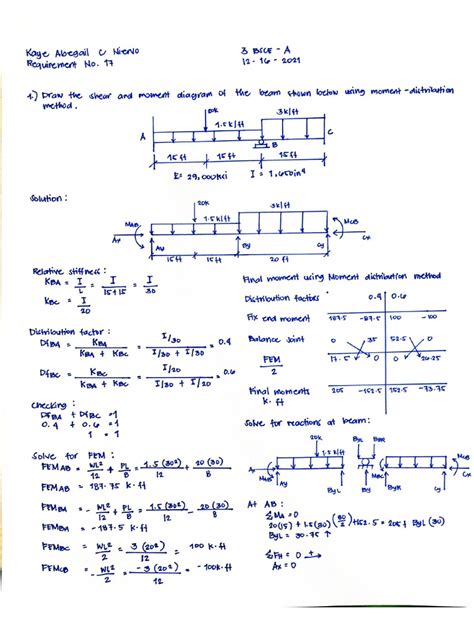 Kaye Abegail C Niervo 3 BSCE - A
Requirement No. 17 12 - 16 - 2021
4.) Draw the shear and moment diagram of the beam shown below using moment-distribution
method.
20k 3k/ft
1.5k/ft
A B C
15ft 15ft 15ft
E= 29,000ksi I = 1,650in⁴
Solution:
20k 3k/ft
MAB 1.5k/ft MCB
Ax Cx
Ay By Cy
15ft 15ft 20 ft
Relative stiffness:
KBA = I/L = I/15+15 = I/30
KBC = I/20
Distribution factor:
DFBA = KBA/KBA + KBC = I/30/I/30 + I/20 = 0.4
DFBC = KBC/KBA + KBC = I/20/I/30 + I/20 = 0.6
Checking:
DFBA + DFBC = 1
0.4 + 0.6 = 1
1 = 1
Solve for FEM:
FEMAB = WL²/12 + PL/8 = 1.5(30²)/12 + 20(30)/8
FEMAB = 187.75 k·ft
FEMBA = - WL²/12 + PL/8 = - 1.5(30²)/12 - 20(30)/8
FEMBA = - 187.5 k·ft
FEMBC = WL²/12 = 3(20²)/12 = 100 k·ft
FEMCB = - WL²/12 = - 3(20²)/12 = -100k·ft
Final moment using Moment distribution method
Distribution factors 0.4 0.6
Fix end moment 187.5 -187.5 100 -100
Balance Joint 0 35 52.5 0
FEM/2 17.5 0 0 26.25
Final moments 205 -152.5 152.5 -73.75
k·ft
Solve for reactions at beam:
20k ByL ByR
1.5k/ft
MAB MBC MCB
ByL ByR Cy
At AB:
ΣMA = 0
20(15) + 1.5(30)(30/2) + 152.5 = 205 + ByL(30)
ByL = 30.75 ↑
ΣFH = 0 →+
Ax = 0